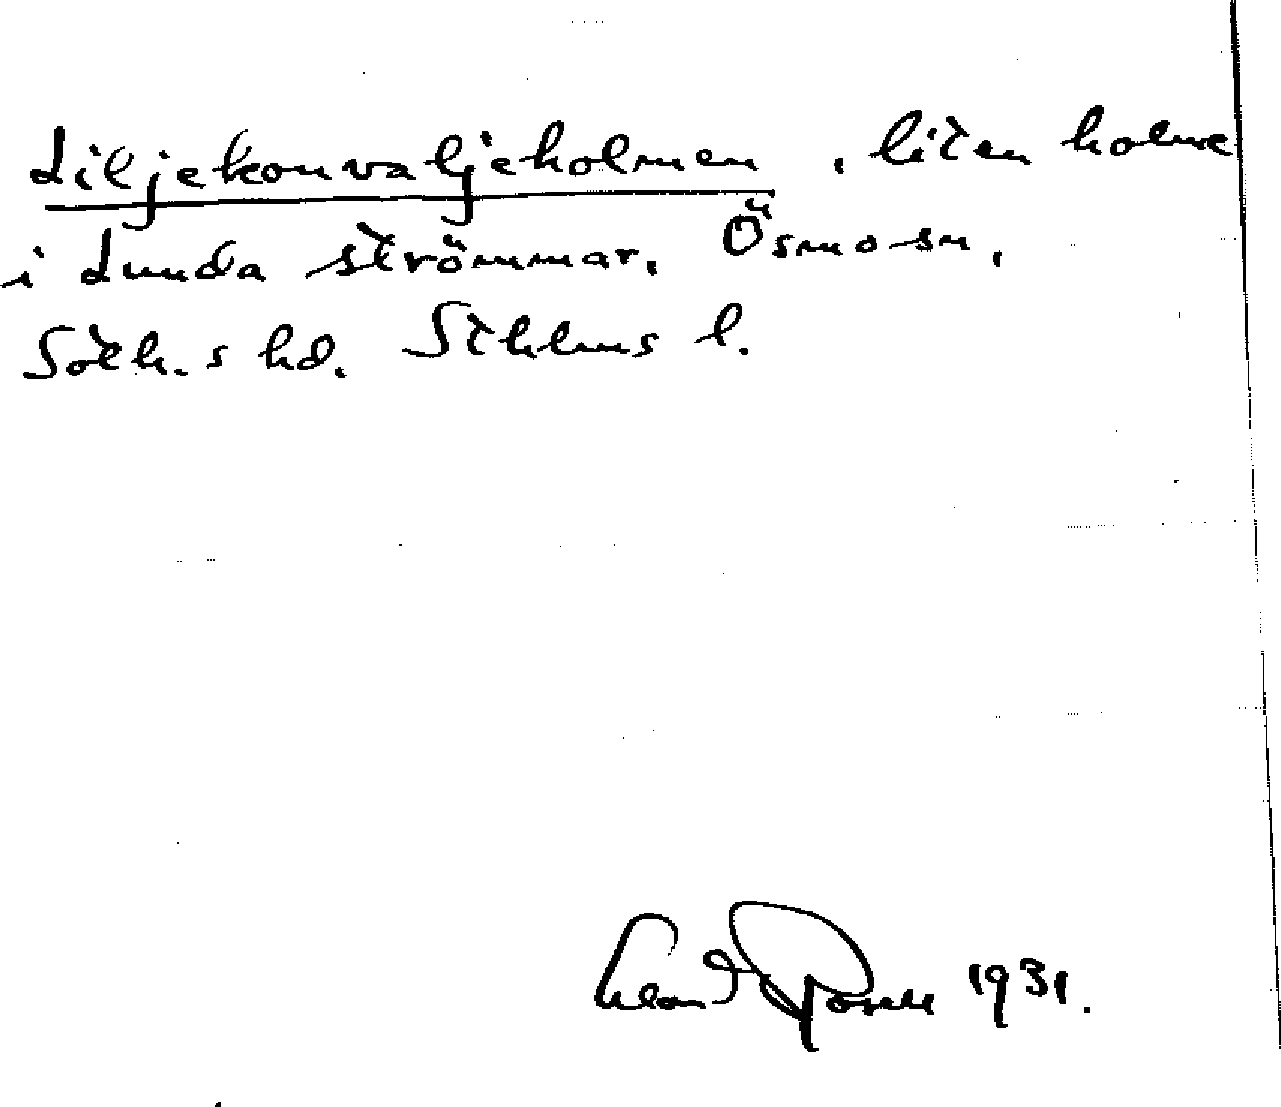 Liljekonvaljeholmen, liten holme
i Lunda strömmar, Ösmo sn,
Soth.s hd. Sthlms l.
1931.